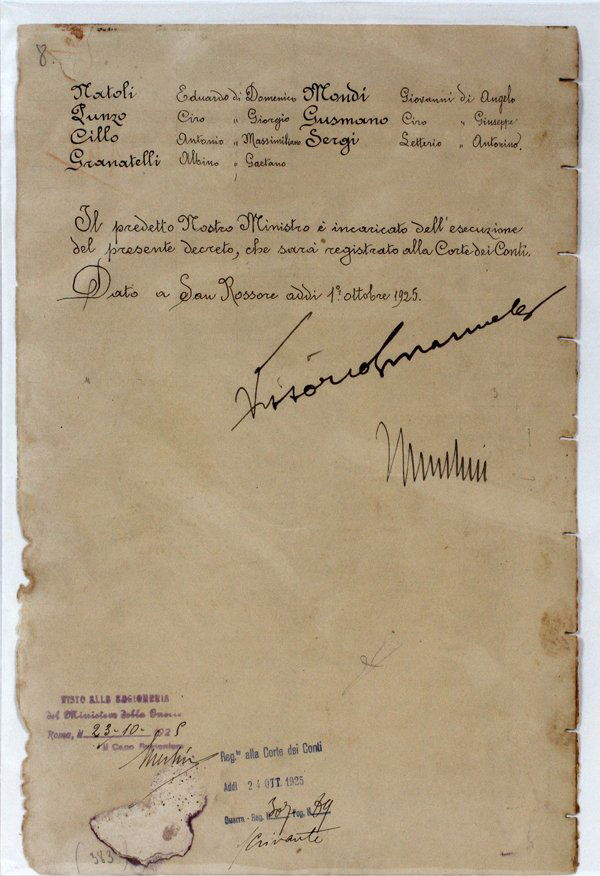 8.
Natoli Eduardo di Domenico Mondi Giovanni di Angelo
Punzo Ciro " Giorgio Gusmano Ciro " Giuseppe
Cillo Antonio " Massimiliano Sergi Letterio " Antonino.
Granatelli Albino " Gaetano
Il predetto Nostro Ministro è incaricato dell'esecuzione
del presente decreto, che sarà registrato alla Corte dei Conti.
Dato a San Rossore addì 1º ottobre 1925.
Vittorio Emanuele
Mussolini
VISTO ALLA RAGIONERIA
del Ministero della Guerra
Roma, li 23-10-925
Il Capo Ragioniere
Reg.to alla Corte dei Conti
Addì 24 OTT. 1925
Guerra - Reg. N. 307 Fog. N. 89
(383)